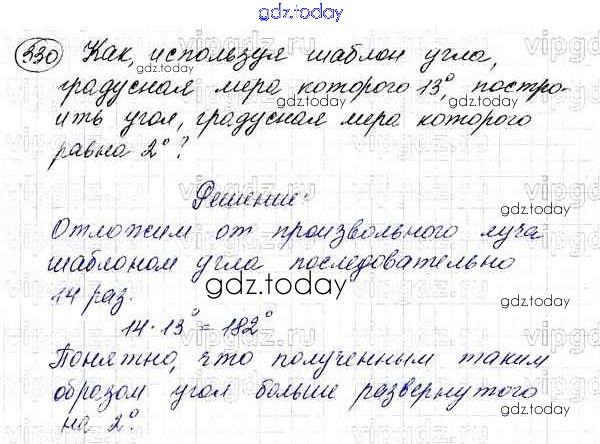 gdz.today
330 Как, используя шаблон угла,
gdz.today
градусная мера которого 13°, постро-
gdz.today
ить угол, градусная мера которого
равна 2°?
gdz.today
Решение:
gdz.today
Отложим от произвольного луча
шаблоном угла последовательно
14 раз.
gdz.today
14·13° = 182°
gdz.today
Понятно, что полученным таким
образом угол больше развернутого
на 2°.
gdz.today